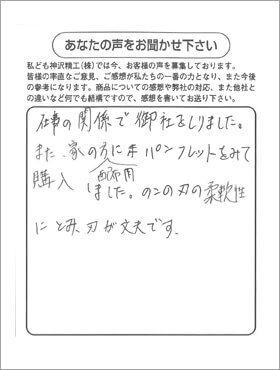 あなたの声をお聞かせ下さい
私ども神沢精工(株)では今、お客様の声を募集しております。
皆様の率直なご意見、ご感想が私たちの一番の力となり、また今後
の参考になります。商品についての感想や弊社の対応、また他社と
の違いなど何でも結構ですので、感想を書いてお送り下さい。
仕事の関係で御社をしりました。
また、家の方にホパンフレットをみて
購入 しました。のこの刃の柔軟性
にとみ、刃が丈夫です。